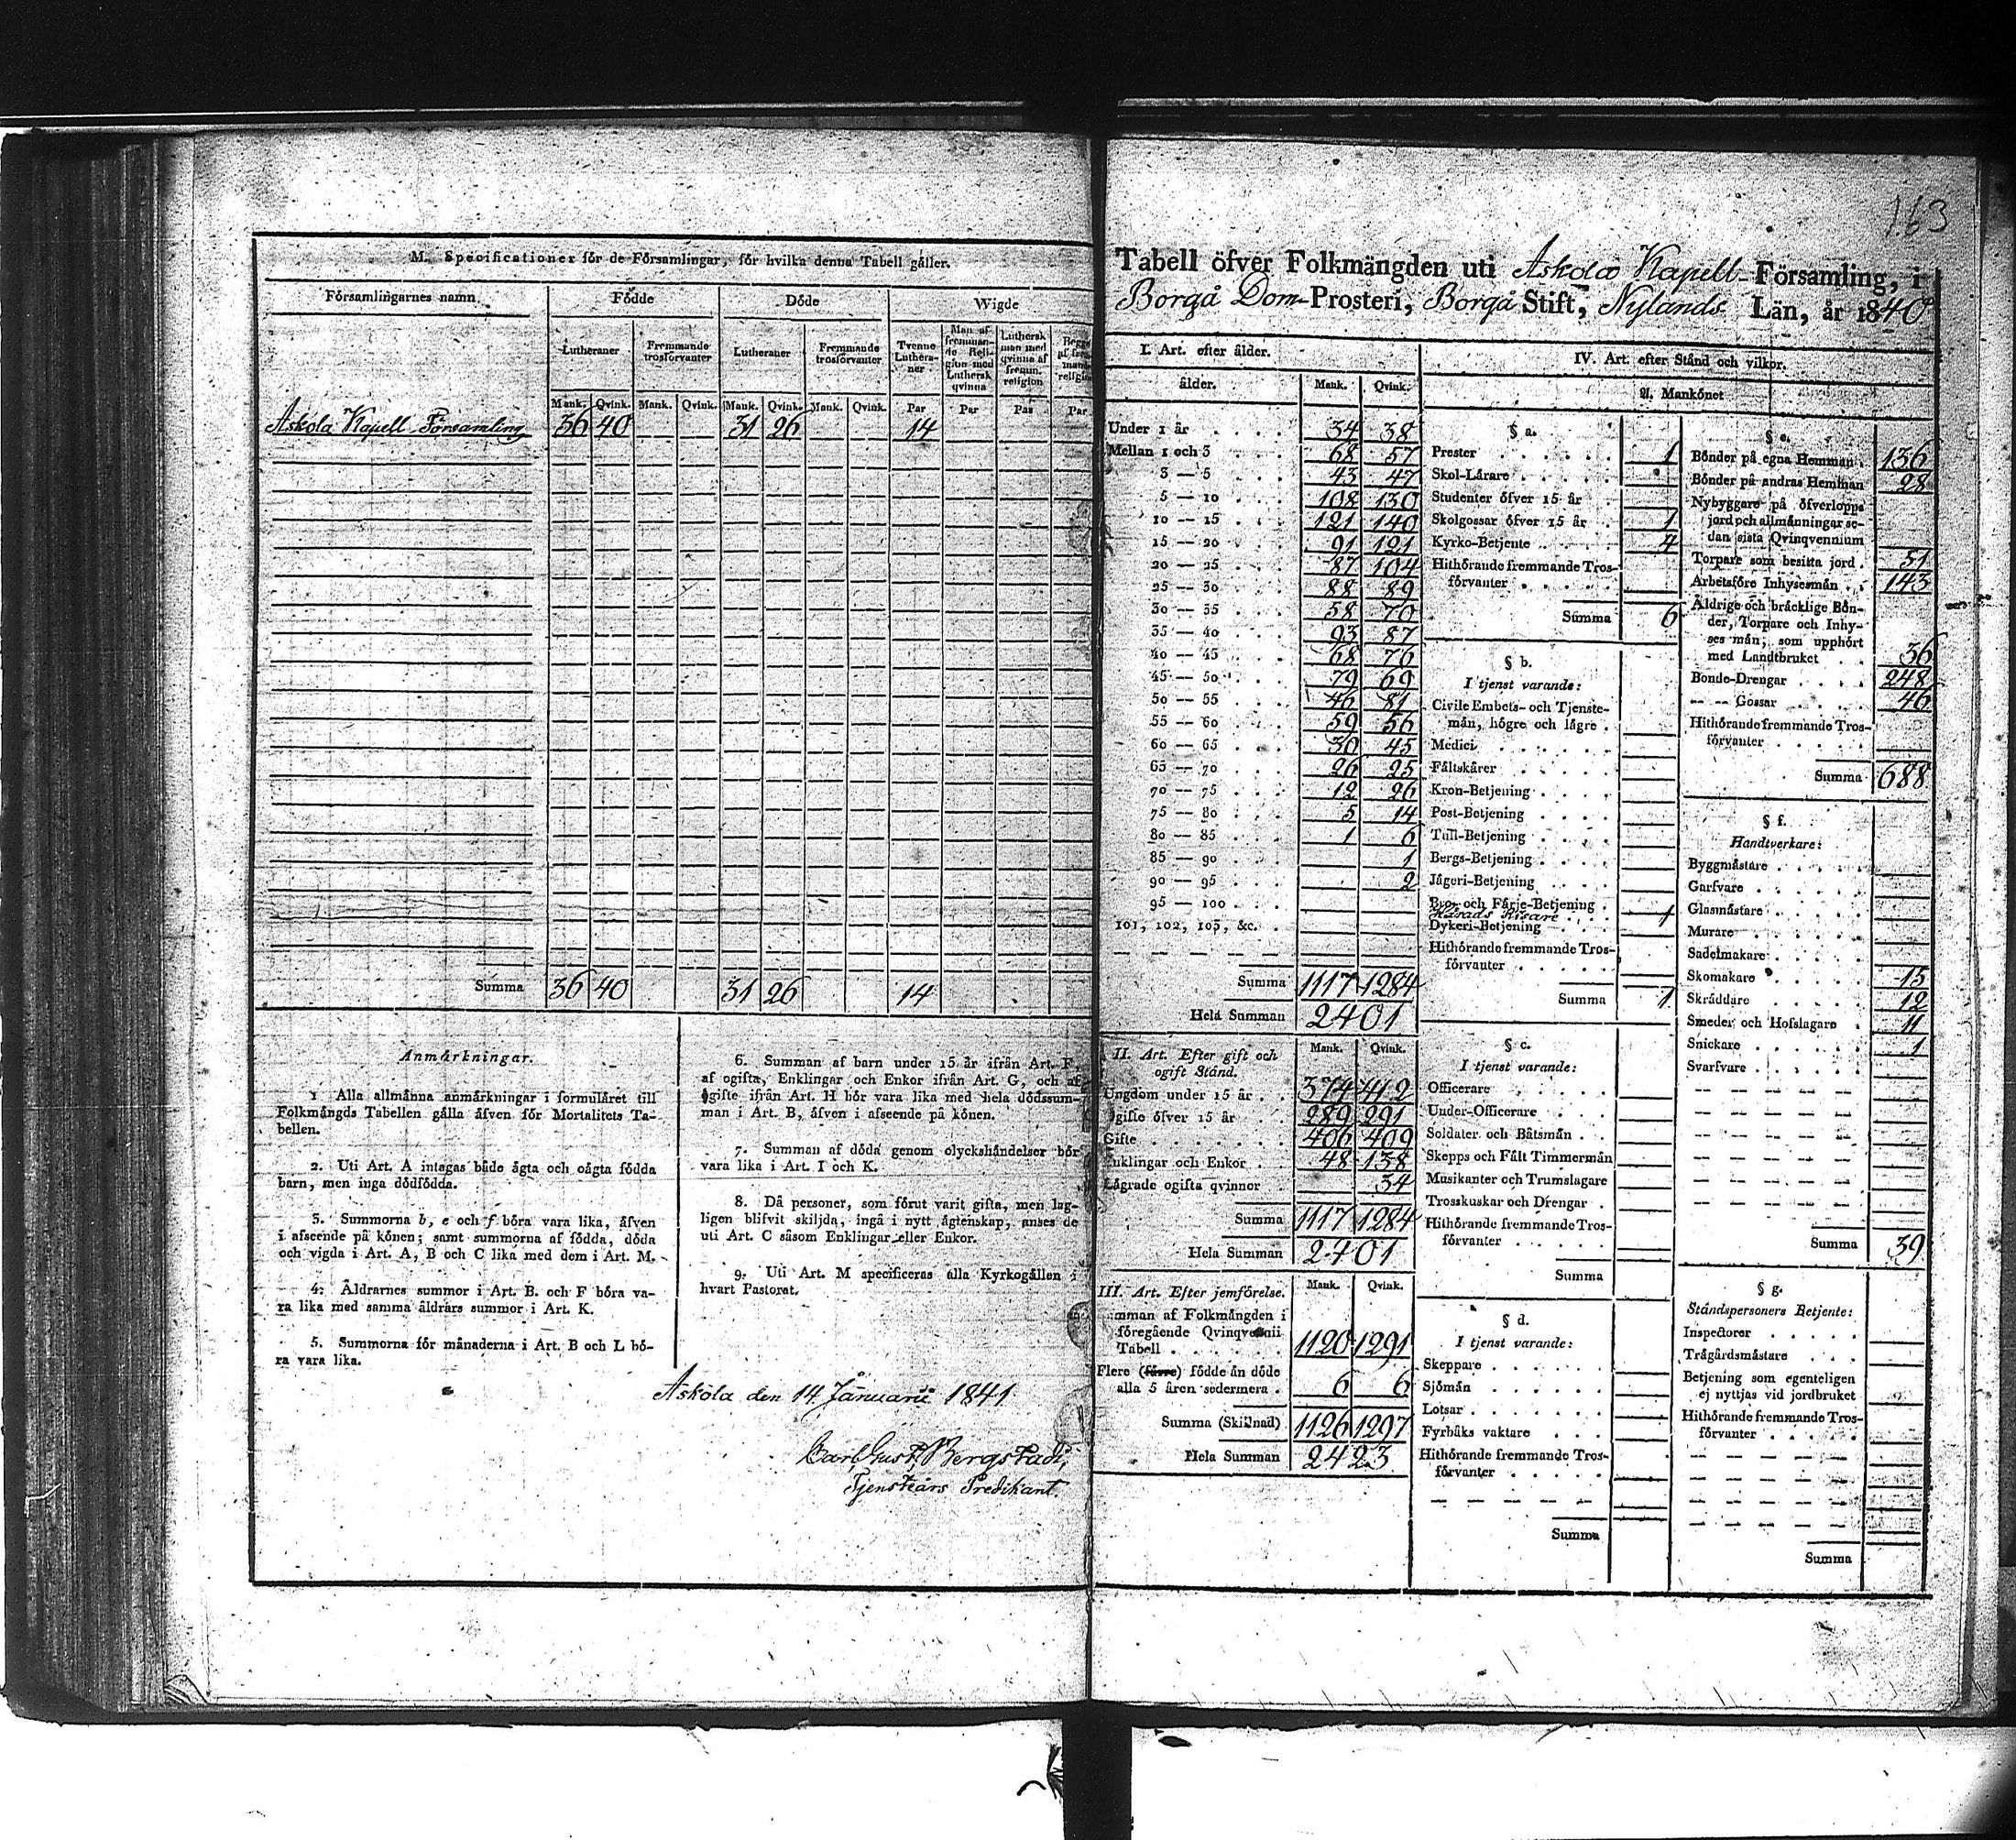 M. Specificationer för de Församlingar, för hvilka denna Tabell gäller.
Församlingarnes namn Födde Döde Wigde
Lutheraner Fremmande trosförvanter Lutheraner Fremmande trosförvanter Tvenne Lutheraner Man af fremmande Religion med Luthersk qvinna Luthersk man med qvinna af fremm. religion
Mank. Qvink. Mank. Qvink. Mank. Qvink. Mank. Qvink. Par Par Par Par
Askola Kapell Församling 36 40 31 26 14
Summa 36 40 31 26 14
Anmärkningar.
1 Alla allmänna anmärkningar i formuläret till
Folkmängds Tabellen gälla äfven för Mortalitets Ta-
bellen.
2. Uti Art. A intagas både ägta och oägta födda
barn, men inga dödfödda.
3. Summorna b, e och f böra vara lika, äfven
i afseende på könen; samt summorna af födda, döda
och vigda i Art. A, B och C lika med dem i Art. M.
4. Åldrarnes summor i Art. B. och F böra va-
ra lika med samma åldrars summor i Art. K.
5. Summorna för månaderna i Art. B och L bö-
ra vara lika.
6. Summan af barn under 15 år ifrån Art. F,
af ogifta, Enklingar och Enkor ifrån Art. G, och af
gifte ifrån Art. H bör vara lika med hela dödssum-
man i Art. B, äfven i afseende på könen.
7. Summan af döda genom olyckshändelser bör
vara lika i Art. I och K.
8. Då personer, som förut varit gifta, men lag-
ligen blifvit skiljda, ingå i nytt ägtenskap, anses de
uti Art. C såsom Enklingar eller Enkor.
9. Uti Art. M specificeras alla Kyrkogällen i
hvart Pastorat.
Askola den 14 Januarii 1841
Carl Gust. Bergstadi,
Tjenstgörs Predikant.
163
Tabell öfver Folkmängden uti Askola Kapell-Församling, i
Borgå Dom-Prosteri, Borgå Stift, Nylands Län, år 1840
I. Art. efter ålder.
ålder. Mank. Qvink.
Under 1 år 34 38
Mellan 1 och 3 68 57
3 — 5 43 47
5 — 10 108 130
10 — 15 121 140
15 — 20 91 121
20 — 25 87 104
25 — 30 88 89
30 — 35 58 70
35 — 40 93 87
40 — 45 68 76
45 — 50 79 69
50 — 55 46 81
55 — 60 59 56
60 — 65 30 45
65 — 70 26 25
70 — 75 12 26
75 — 80 5 14
80 — 85 1 6
85 — 90 1
90 — 95 2
95 — 100
101, 102, 103, &c.
Summa 1117 1284
Hela Summan 2401
II. Art. Efter gift och
ogift Stånd. Mank. Qvink.
Ungdom under 15 år 374 412
Ogifte öfver 15 år 289 291
Gifte 406 409
Enklingar och Enkor 48 138
Lägrade ogifta qvinnor 34
Summa 1117 1284
Hela Summan 2401
III. Art. Efter jemförelse. Mank. Qvink.
Summan af Folkmängden i
föregående Qvinqvennii
Tabell 1120 1291
Flere (färre) födde än döde
alla 5 åren sedermera 6 6
Summa (Skillnad) 1126 1297
Hela Summan 2423
IV. Art. efter Stånd och vilkor.
A. Mankönet
§ a.
Prester 1
Skol-Lärare
Studenter öfver 15 år
Skolgossar öfver 15 år 1
Kyrko-Betjente 4
Hithörande fremmande Tros-
förvanter
Summa 6
§ b.
I tjenst varande:
Civile Embets- och Tjenste-
män, högre och lägre
Medici
Fältskärer
Kron-Betjening
Post-Betjening
Tull-Betjening
Bergs-Betjening
Jägeri-Betjening
Bro- och Färje-Betjening
Härads Kisare 1
Dykeri-Betjening
Hithörande fremmande Tros-
förvanter
Summa 1
§ c.
I tjenst varande:
Officerare
Under-Officerare
Soldater och Båtsmän
Skepps och Fält Timmermän
Musikanter och Trumslagare
Trosskuskar och Drengar
Hithörande fremmande Tros-
förvanter
Summa
§ d.
I tjenst varande:
Skeppare
Sjömän
Lotsar
Fyrbåks vaktare
Hithörande fremmande Tros-
förvanter
Summa
§ e.
Bönder på egna Hemman 136
Bönder på andras Hemman 28
Nybyggare på öfverlopps
jord och allmänningar se-
dan sista Qvinqvennium
Torpare som besitta jord 51
Arbetsföre Inhysesmän 143
Åldrige och bräcklige Bön-
der, Torpare och Inhy-
ses män, som upphört
med Landtbruket 36
Bonde-Drengar 248
— — Gossar 46
Hithörande fremmande Tros-
förvanter
Summa 688
§ f.
Handtverkare:
Byggmästare
Garfvare
Glasmästare
Murare
Sadelmakare
Skomakare 15
Skräddare 12
Smeder och Hofslagare 11
Snickare 1
Svarfvare
Summa 39
§ g.
Ståndspersoners Betjente:
Inspectorer
Trägårdsmästare
Betjening som egenteligen
ej nyttjas vid jordbruket
Hithörande fremmande Tros-
förvanter
Summa